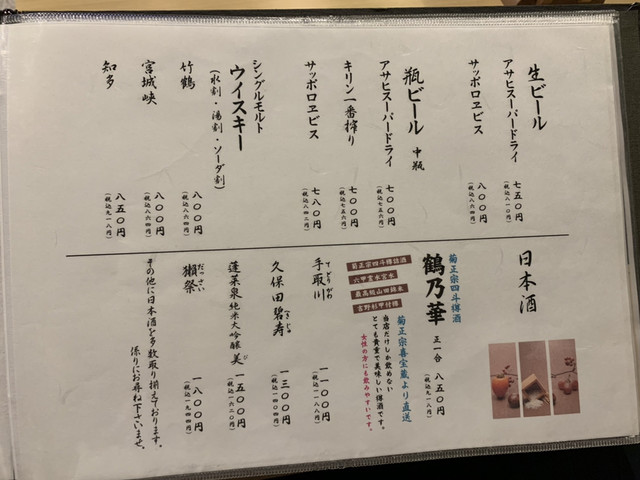 生ビール
アサヒスーパードライ
七五〇円
(税込八一〇円)
サッポロヱビス
八〇〇円
(税込八六四円)
瓶ビール 中瓶
アサヒスーパードライ
七〇〇円
(税込七五六円)
キリン一番搾り
七〇〇円
(税込七五六円)
サッポロヱビス
七八〇円
(税込八四二円)
シングルモルト
ウイスキー
(水割・湯割・ソーダ割)
竹鶴
八〇〇円
(税込八六四円)
宮城峡
八〇〇円
(税込八六四円)
知多
八五〇円
(税込九一八円)
日本酒
菊正宗四斗樽酒
鶴乃華
正一合 八五〇円
(税込九一八円)
菊正宗喜宝蔵より直送
当店だけしか飲めない
とても貴重で美味しい樽酒です。
女性の方にも飲みやすいです。
菊正宗四斗樽詰酒
六甲宮水宮水
最高級山田錦米
吉野杉甲付樽
手取川
てどりがわ
一一〇〇円
(税込一一八八円)
久保田碧寿
へきじゅ
一三〇〇円
(税込一四〇四円)
蓬莱泉純米大吟醸 美
び
一五〇〇円
(税込一六二〇円)
獺祭
だっさい
一八〇〇円
(税込一九四四円)
その他に日本酒を多数取り揃えております。
係りにお尋ね下さいませ。